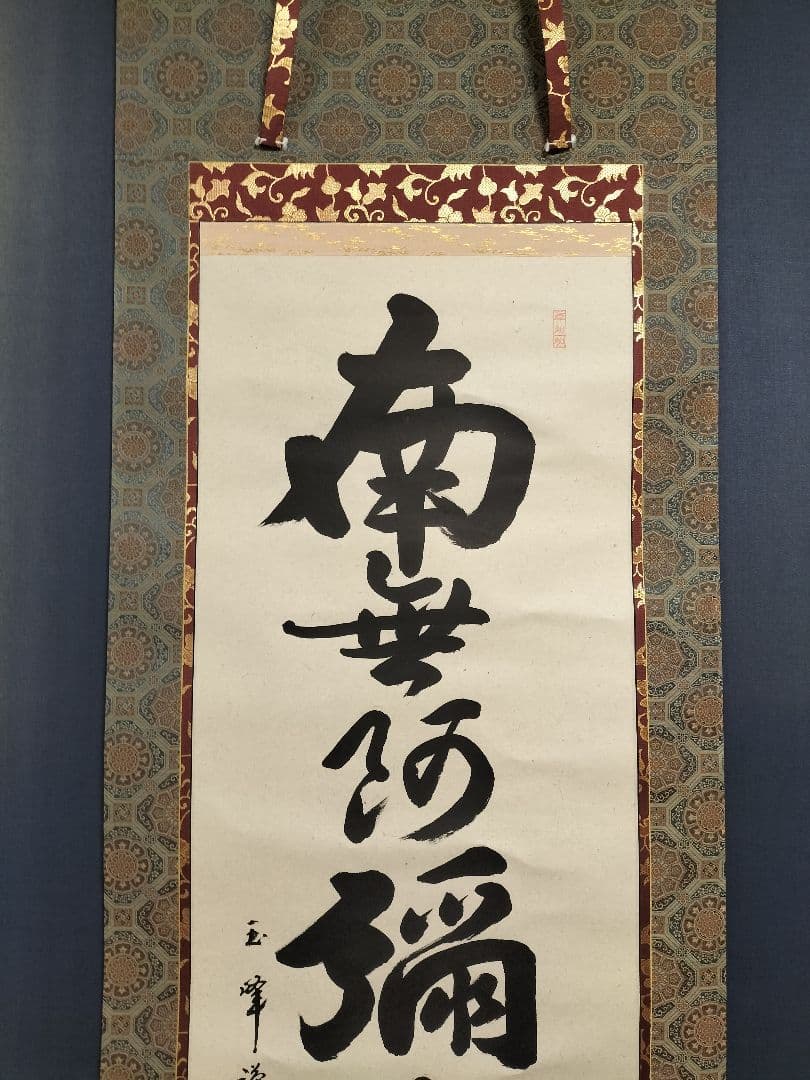 南無阿彌
玉峰謹